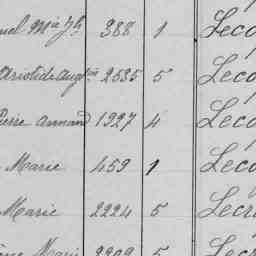 uel Mie Jh 388 1 Leco
Aristide Augtin 2535 5 Leco
Pierre Armand 1327 4 Leco
Marie 453 1 Leco
Marie 2224 5 Lecr
Marie 5 Lecr